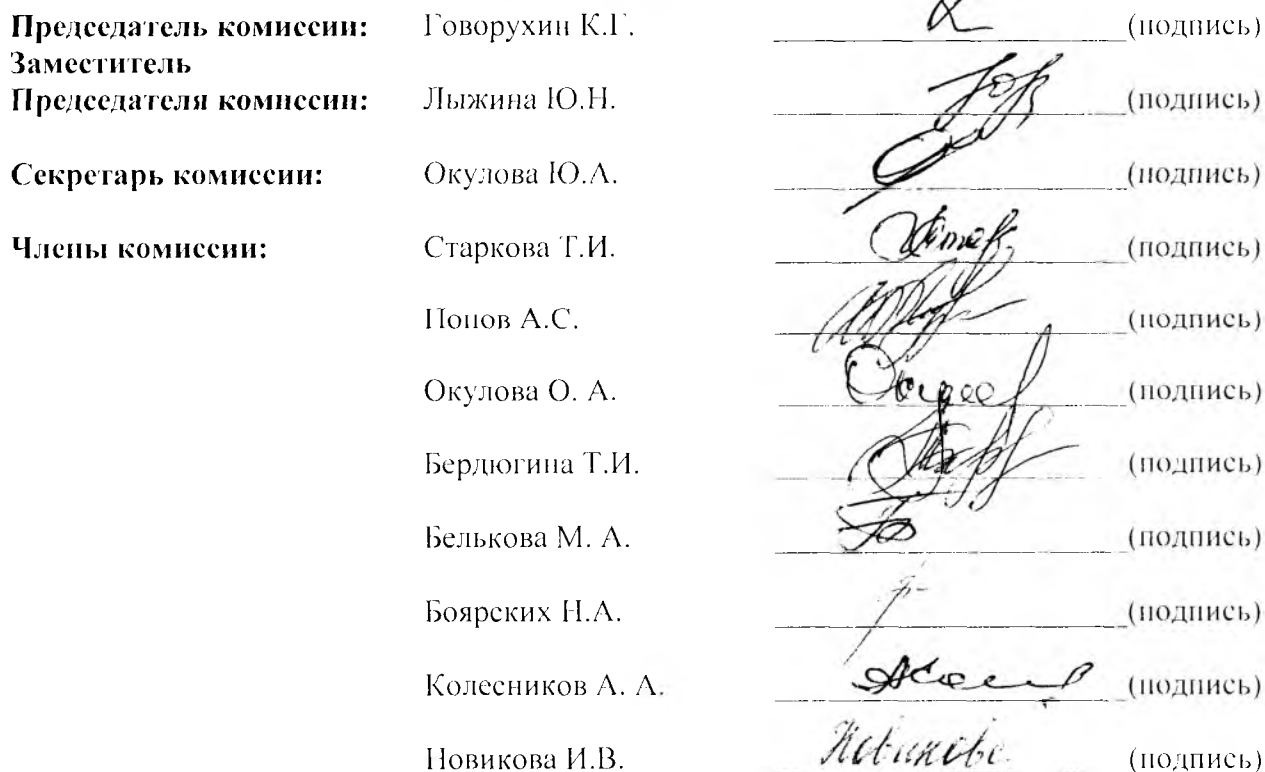 Председатель комиссии: Говорухин К.Г. (подпись)
Заместитель
Председателя комиссии: Лыжина Ю.Н. (подпись)
Секретарь комиссии: Окулова Ю.А. (подпись)
Члены комиссии: Старкова Т.И. (подпись)
Попов А.С. (подпись)
Окулова О. А. (подпись)
Бердюгина Т.И. (подпись)
Белькова М. А. (подпись)
Боярских Н.А. (подпись)
Колесников А. А. (подпись)
Новикова И.В. (подпись)